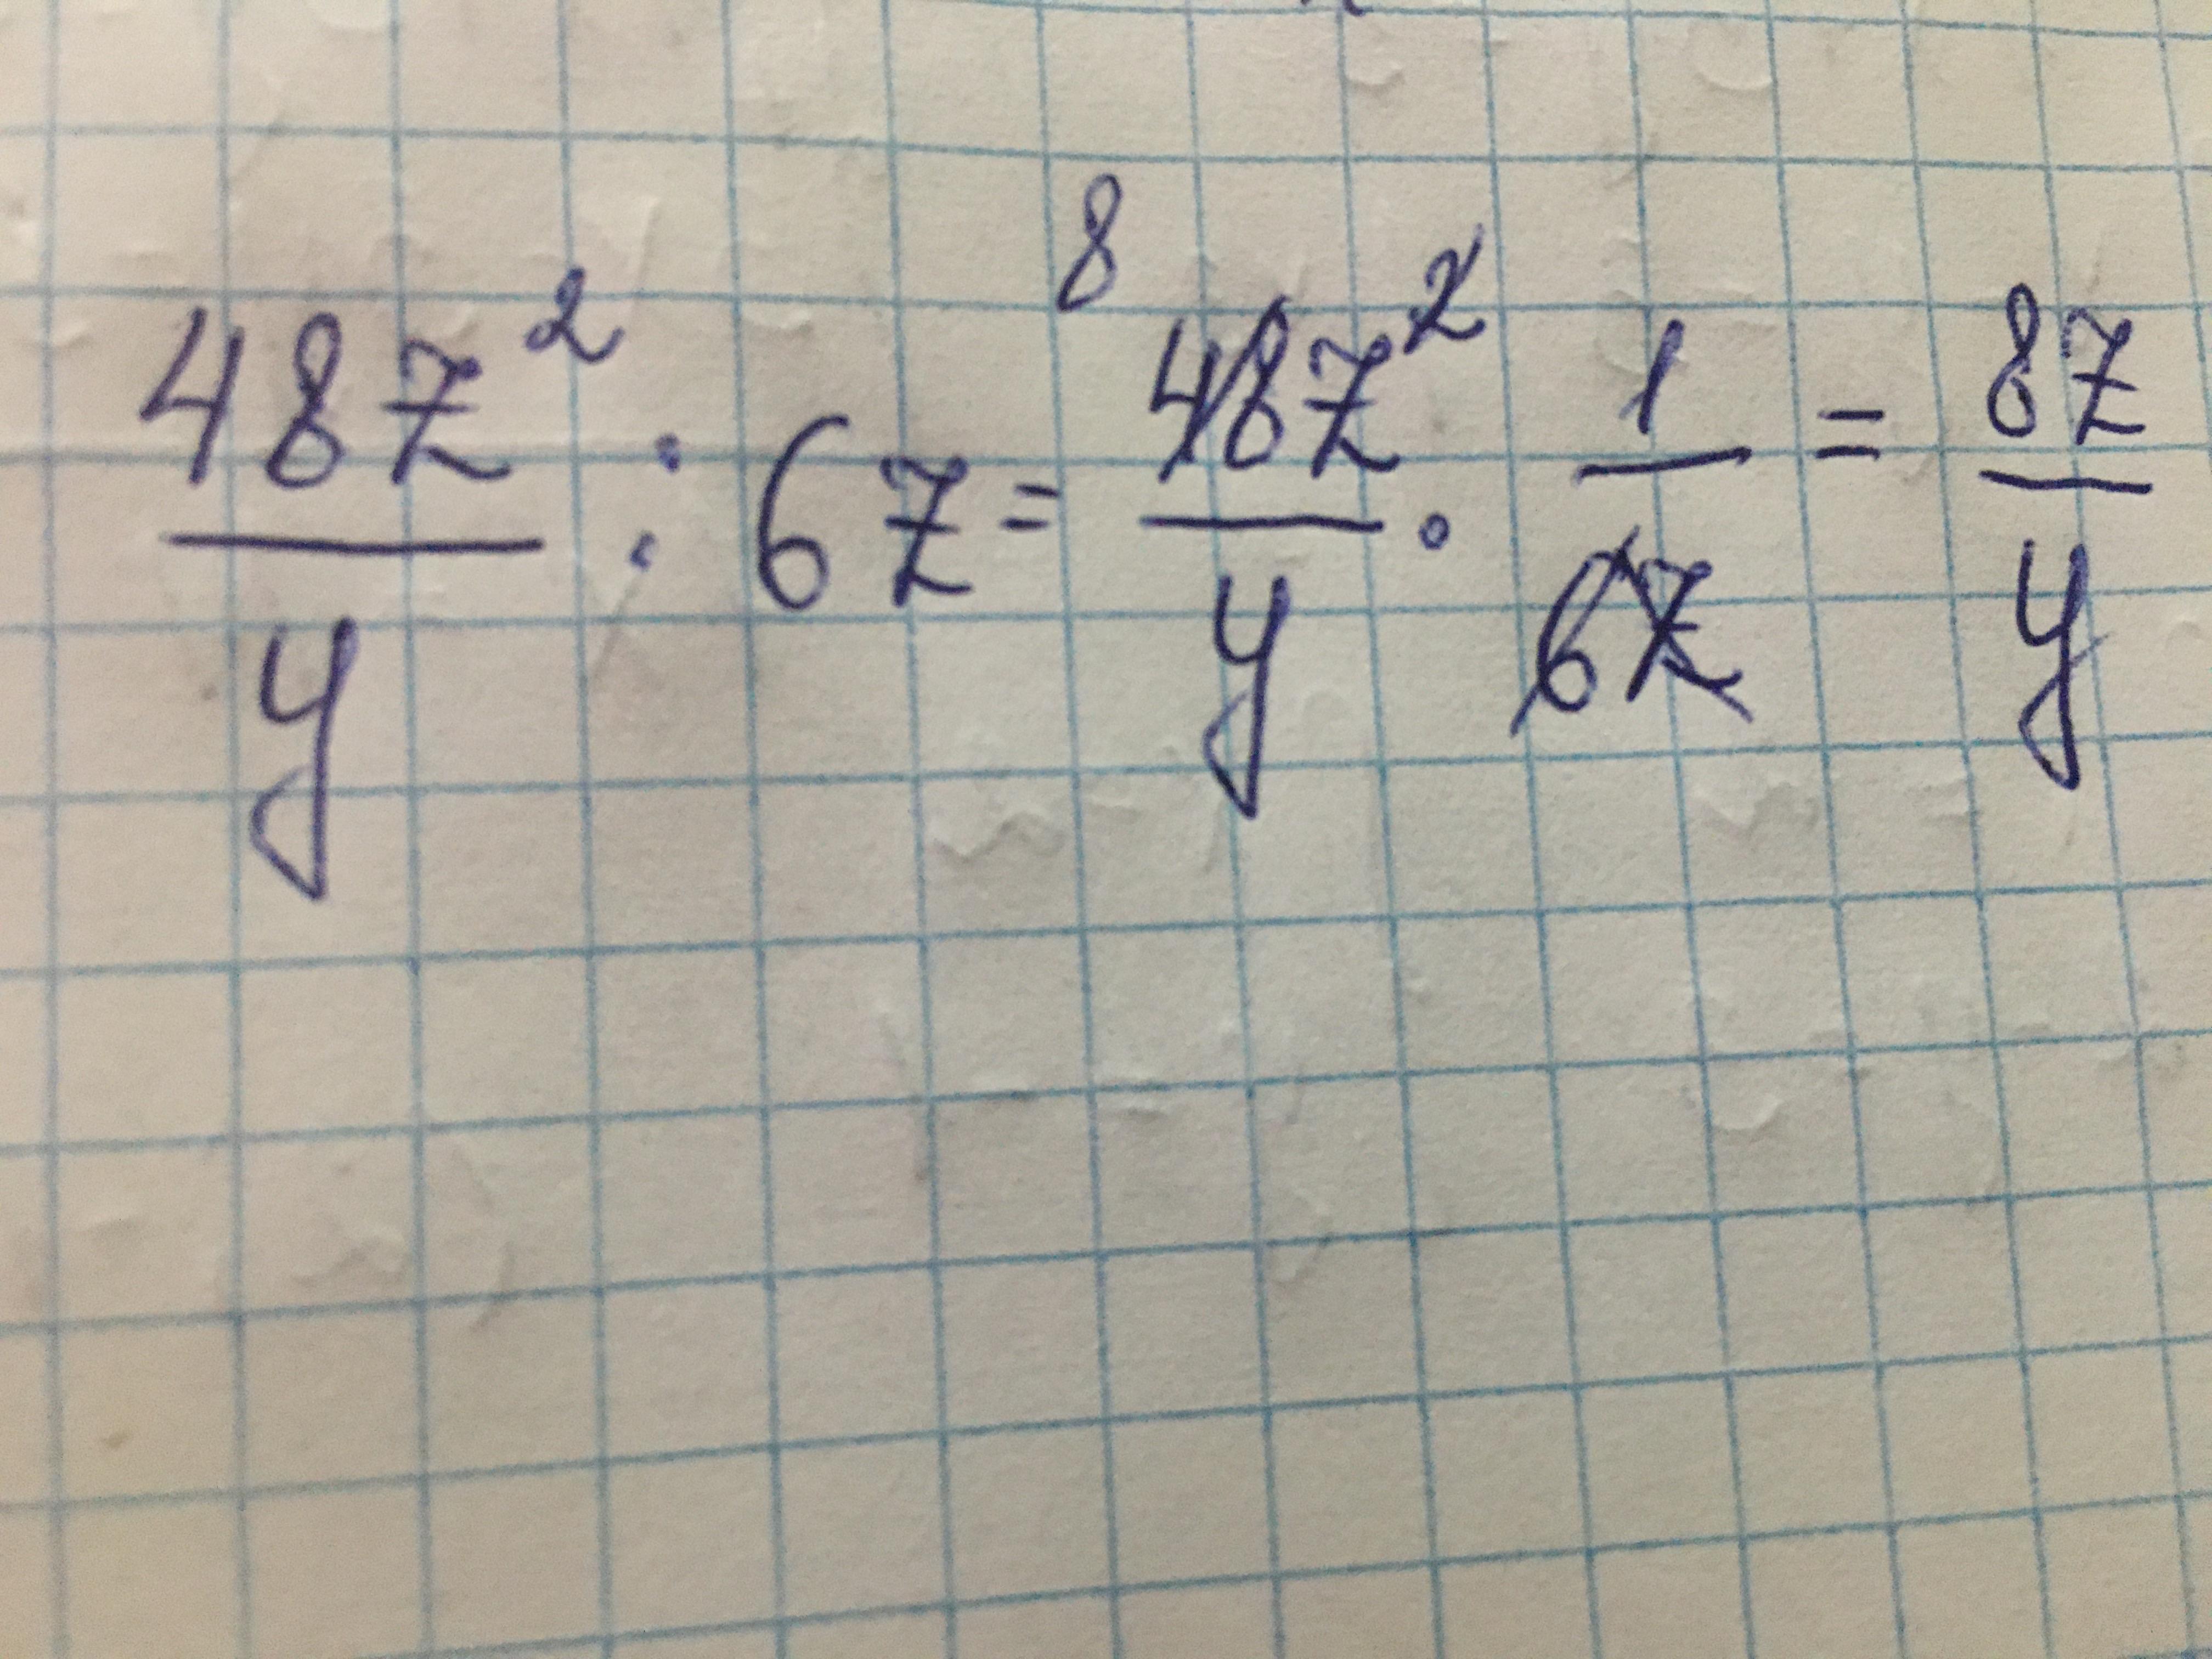 48z² / y : 6z = 8 48z² / y · 1 / 6z = 8z / y